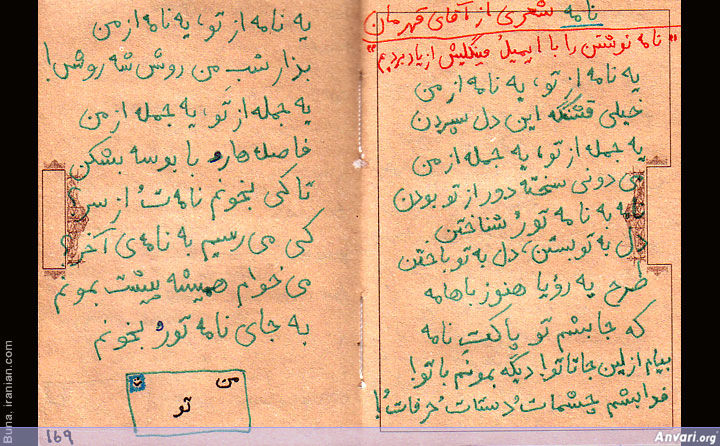 نامه شعری از آقای قهرمان
"نامه نوشتن را با ایمیلُ فینگلیش از یاد بردیم"
یه نامه از تو، یه نامه از من
خیلی قشنگه این دل سپردن
یه جمله از تو، یه جمله از من
می دونی سخته دور از تو بودن
نامه به نامه تورُ شناختن
دل به تو بستن، دل به تو باختن
طرح یه رؤیا هنوز باهامه
که جا بشم تو پاکتِ نامه
بیام از این جا تا تو! دیگه بمونم با تو!
فدا بشم چشمات ُ دستات ُ حرفات ُ!
یه نامه از تو، یه نامه از من
بذار شبِ من روشن شه روشن!
یه جمله از تو، یه جمله از من
فاصله هارو با بوسه بشکن
تا کی بخونم نامه ت ُ از سر
کی می رسیم به نامه ی آخر؟
می خوام همیشه پیشت بمونم
به جای نامه تورُ بخونم
من
تو
169
Buna, iranian.com
Anvari.org